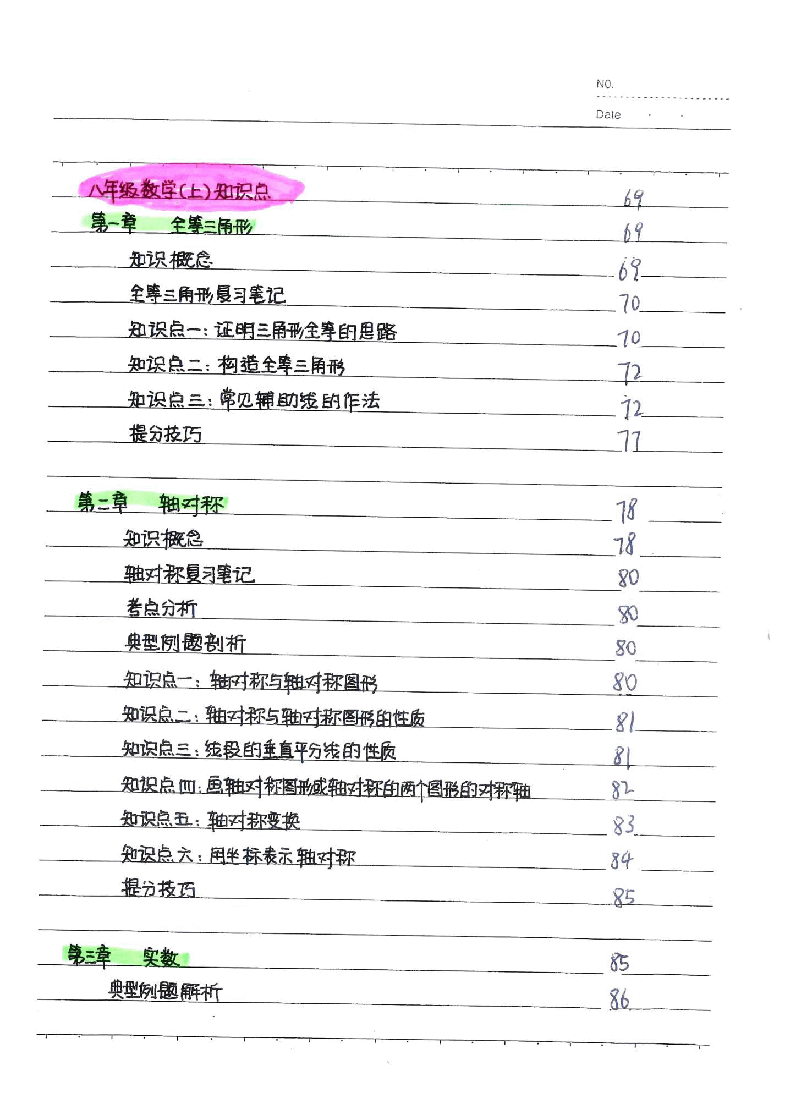 NO.
Date
八年级数学(上)知识点 69
第一章 全等三角形 69
知识概念 69
全等三角形复习笔记 70
知识点一:证明三角形全等的思路 70
知识点二:构造全等三角形 72
知识点三:常见辅助线的作法 72
提分技巧 77
第二章 轴对称 78
知识概念 78
轴对称复习笔记 80
考点分析 80
典型例题剖析 80
知识点一:轴对称与轴对称图形 80
知识点二:轴对称与轴对称图形的性质 81
知识点三:线段的垂直平分线的性质 81
知识点四:画轴对称图形或轴对称的两个图形的对称轴 82
知识点五:轴对称变换 83
知识点六:用坐标表示轴对称 84
提分技巧 85
第三章 实数 85
典型例题解析 86